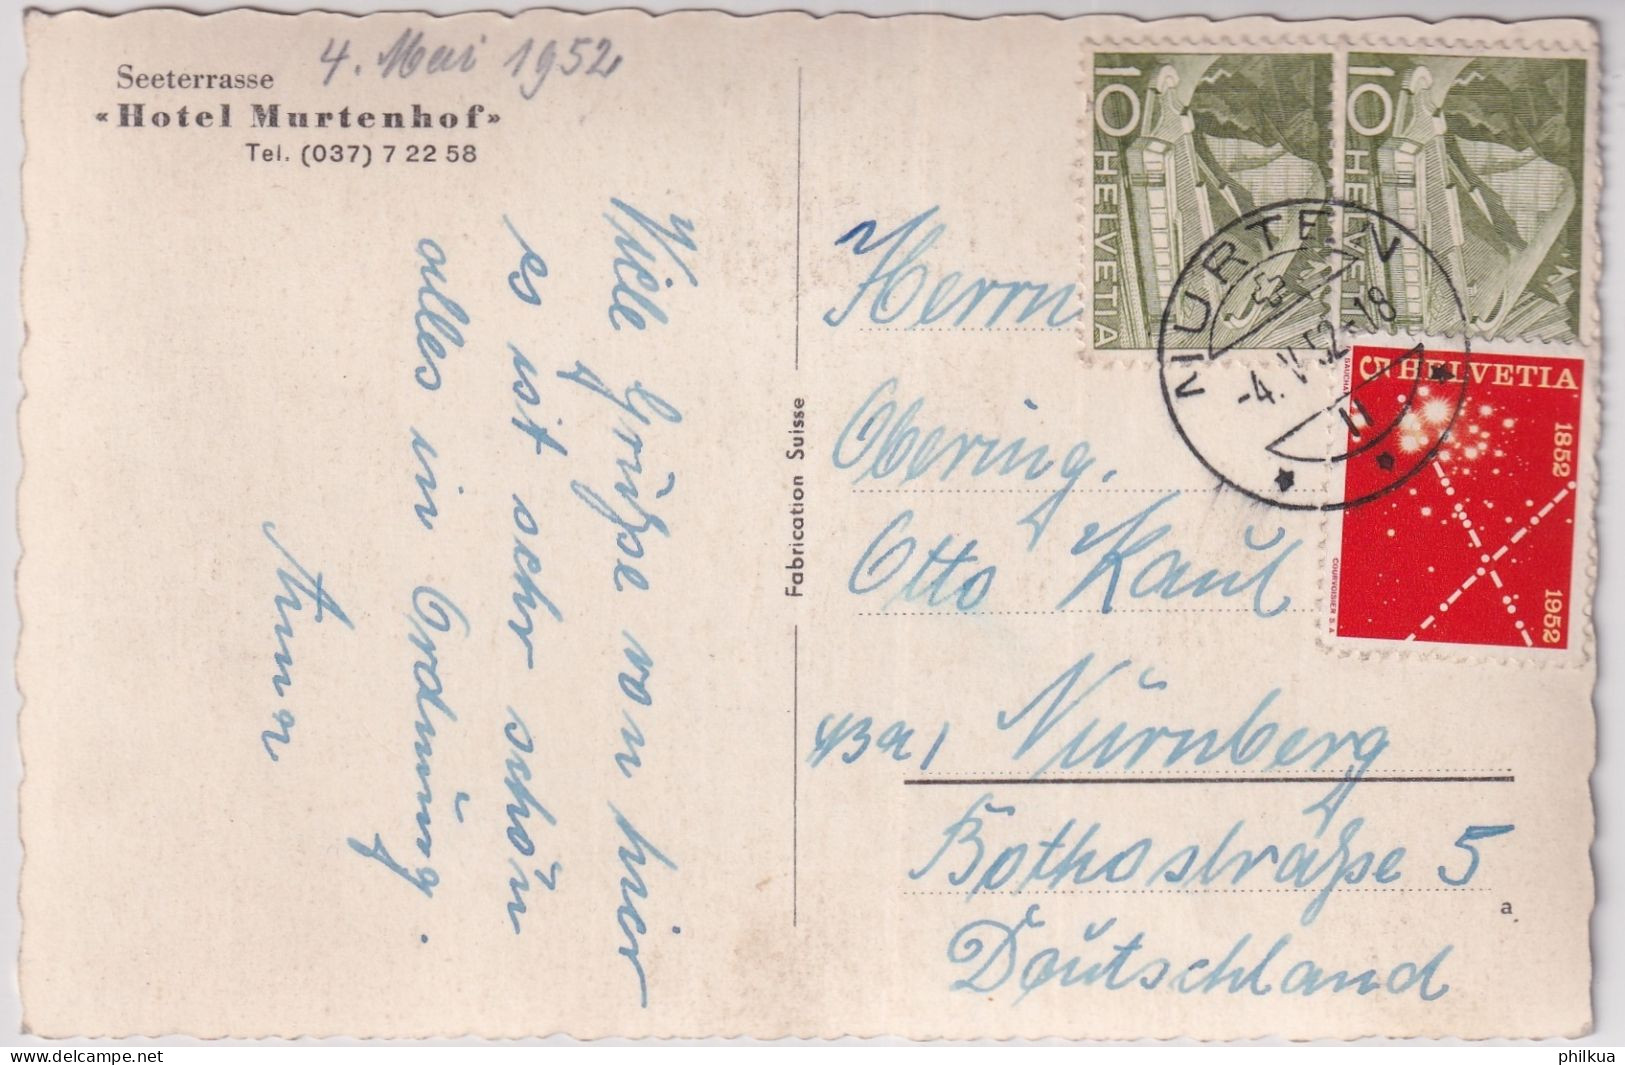 4. Mai 1952
Seeterrasse
«Hotel Murtenhof»
Tel. (037) 7 22 58
Viele Grüße von hier
es ist sehr schön
alles in Ordnung.
Anna
Fabrication Suisse
Herrn
Obering.
Otto Kaul
Nürnberg
Bothostraße 5
Deutschland
a
10 HELVETIA
10 HELVETIA
5 HELVETIA
1852
1952
COURVOISIER S.A.
MURTEN
-4.V.52-18
philkua.com
philkua